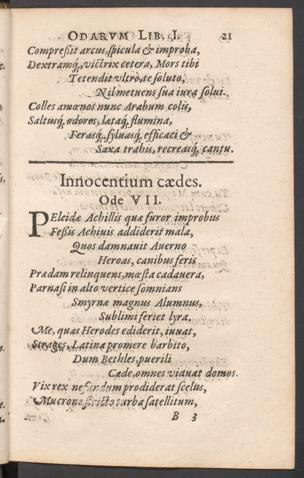 ODARVM LIB. I. 21
Compreßit arcus, spicula & improba,
Dextramq́, victrix cetera, Mors tibi
Tetendit vltrò, te soluto,
Nil metuens sua iura solui.
Colles amœnos nunc Arabum colis,
Saltusq́, odores, lætaq́, flumina,
Ferasq́, syluasq́, efficaci &
Saxa trahis, recreasq́, cantu.
Innocentium cædes.
Ode VII.
PEleidæ Achillis quæ furor improbus
Feßis Achiuis addiderit mala,
Quos damnauit Auerno
Heroas, canibus feris
Prædam relinquens, mœsta cadauera,
Parnasi in alto vertice somnians
Smyrnæ magnus Alumnus,
Sublimi feriet lyra.
Me, quas Herodes ediderit, iuuat,
Strages, Latina promere barbito,
Dum Bethles, puerili
Cæde, omnes viduat domos.
Vix rex nefandum prodiderat scelus,
Mucrone stricto turba satellitum,
B 3